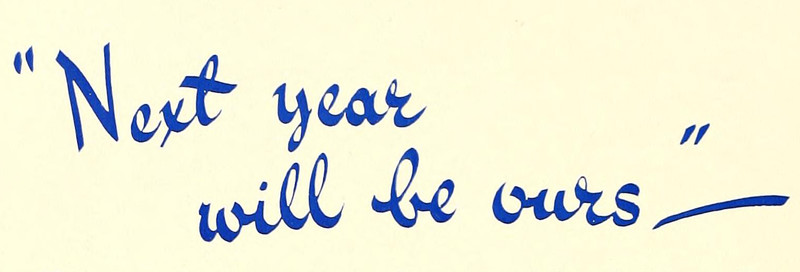 "Next year
will be ours"—